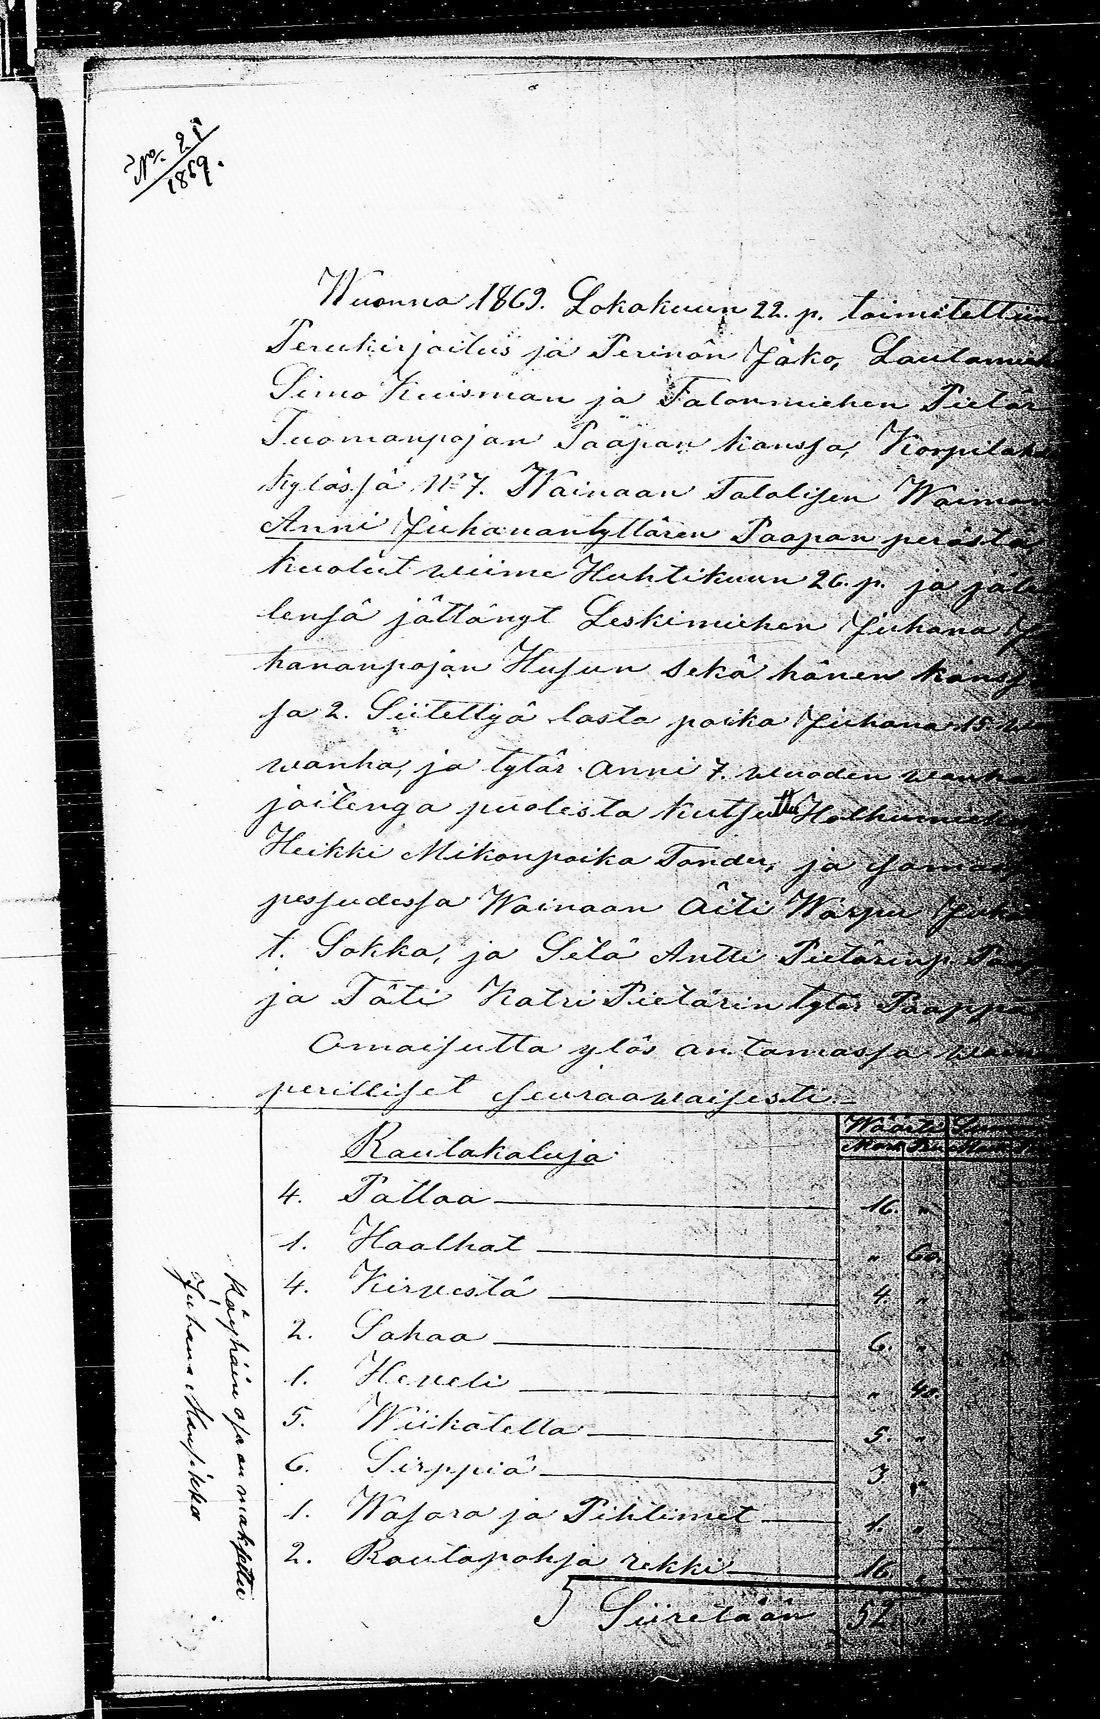 No. 21
1869.
Wuonna 1869. Lokakuun 22. p. toimitettiin
Perukirjoitus ja Perinön Jäko, Lautamieh
Simo Kuisman ja Talonmiehen Pietar
Tuomanpojan Paapan kanssa, Korpilah
kylässä No 7. Wainaan Talolisen Waimon
Anni Juhanantyttären Paapan perästä
kuolut wiime Huhtikuun 26. p. ja jäl
lensä jättänyt Leskimiehen Juhana Ju
hananpojan Husun sekä hänen kanss
sa 2. Siitettyä lasta poika Juhana 15. w
wanha, ja tytär Anni 7. wuoden wanha
joitenga puolesta kutsuttu Holhumies
Heikki Mikonpoika Tander, ja samas
pessudessa Wainaan Äiti Warpu Juha
t. Sokka, ja Setä Antti Pietärinp. Paap
ja Täti Katri Pietärin tytär Paappa
Omaisutta ylös antamassa
perilliset seuraawaisesti.
Rautakaluja
4. Pattaa 16. "
1. Haalhat " 60.
4. Kirvestä 4. "
2. Sahaa 6. "
1. Heveli " 40.
5. Wiikatetta 5. "
6. Sirppiä 3 "
1. Wasara ja Pihtimet 1. "
2. Rautapohja rekki 16 "
Siiretään 52 "
Käyhäin osa on maksettu
Juhana Maujikka